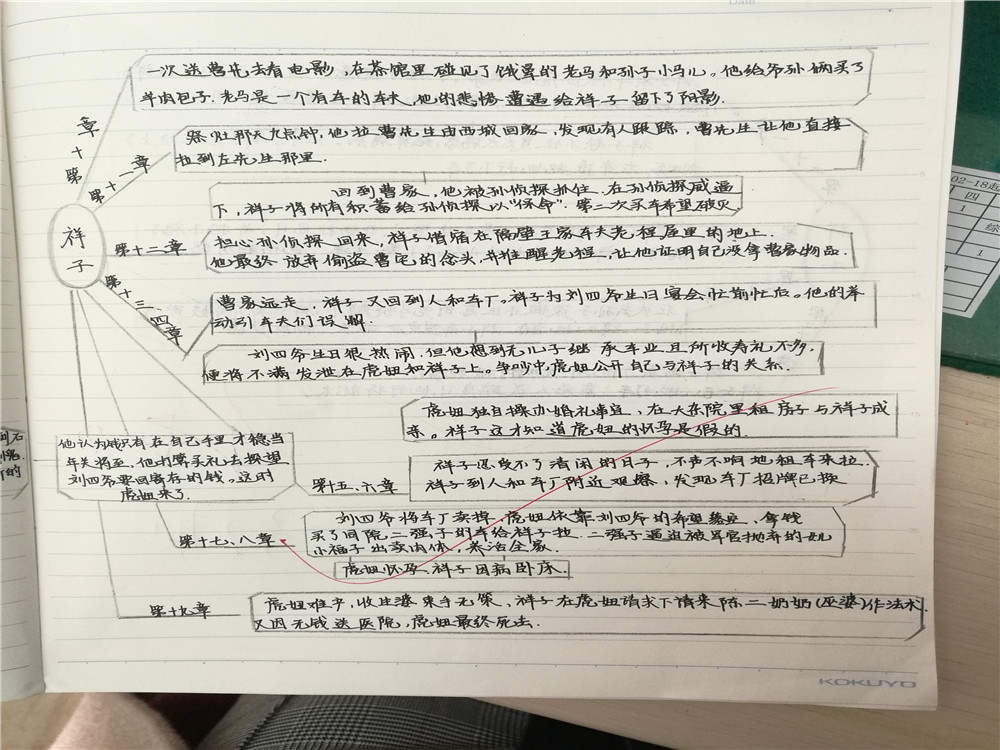 Date
一次送曹先去看电影,在茶馆里碰见了饿晕的老马和孙子小马儿。他给爷孙俩买了
羊肉包子.老马是一个有车的车夫,他的悲惨遭遇给祥子留下了阴影.
第十章
祭灶那天九点钟,他拉曹先生由西城回家,发现有人跟踪,曹先生让他直接
拉到左先生那里.
第十一章
回到曹家,他被孙侦探抓住.在孙侦探威逼
下,祥子将所有积蓄给孙侦探以“保命”.第二次买车希望破灭.
祥子
第十二章
担心孙侦探回来,祥子借宿在隔壁王家车夫老程屋里的地上.
他最终放弃偷盗曹宅的念头,并推醒老程,让他证明自己没拿曹家物品.
第十三、四章
曹家远走,祥子又回到人和车厂。祥子为刘四爷生日宴会忙前忙后。他的举
动引车夫们误解.
刘四爷生日很热闹.但他想到无儿子继承车业且所收寿礼不多,
便将不满发泄在虎妞和祥子上。争吵中虎妞公开自己与祥子的关系.
虎妞独自操办婚礼事宜,在大杂院里租房子与祥子成
亲。祥子这才知道虎妞的怀孕是假的.
他认为钱只有在自己手里才稳当
年关将至,他打算买礼去探望
刘四爷要回寄存的钱。这时
虎妞来了.
第十五、六章
祥子忍受不了清闲的日子,不声不响地租车来拉.
祥子到人和车厂附近观察,发现车厂招牌已换
第十七、八章
刘四爷将车厂卖掉,虎妞依靠刘四爷的希望落空,拿钱
买了同院二强子的车给祥子拉.二强子逼迫被军官抛弃的女儿
小福子出卖肉体,养活全家.
虎妞怀孕、祥子因病卧床.
第十九章
虎妞难产,收生婆束手无策,祥子在虎妞请求下请来陈二奶奶(巫婆)作法水.
又因无钱送医院,虎妞最终死去.
KOKUYO
02-18起
四
1
1
综